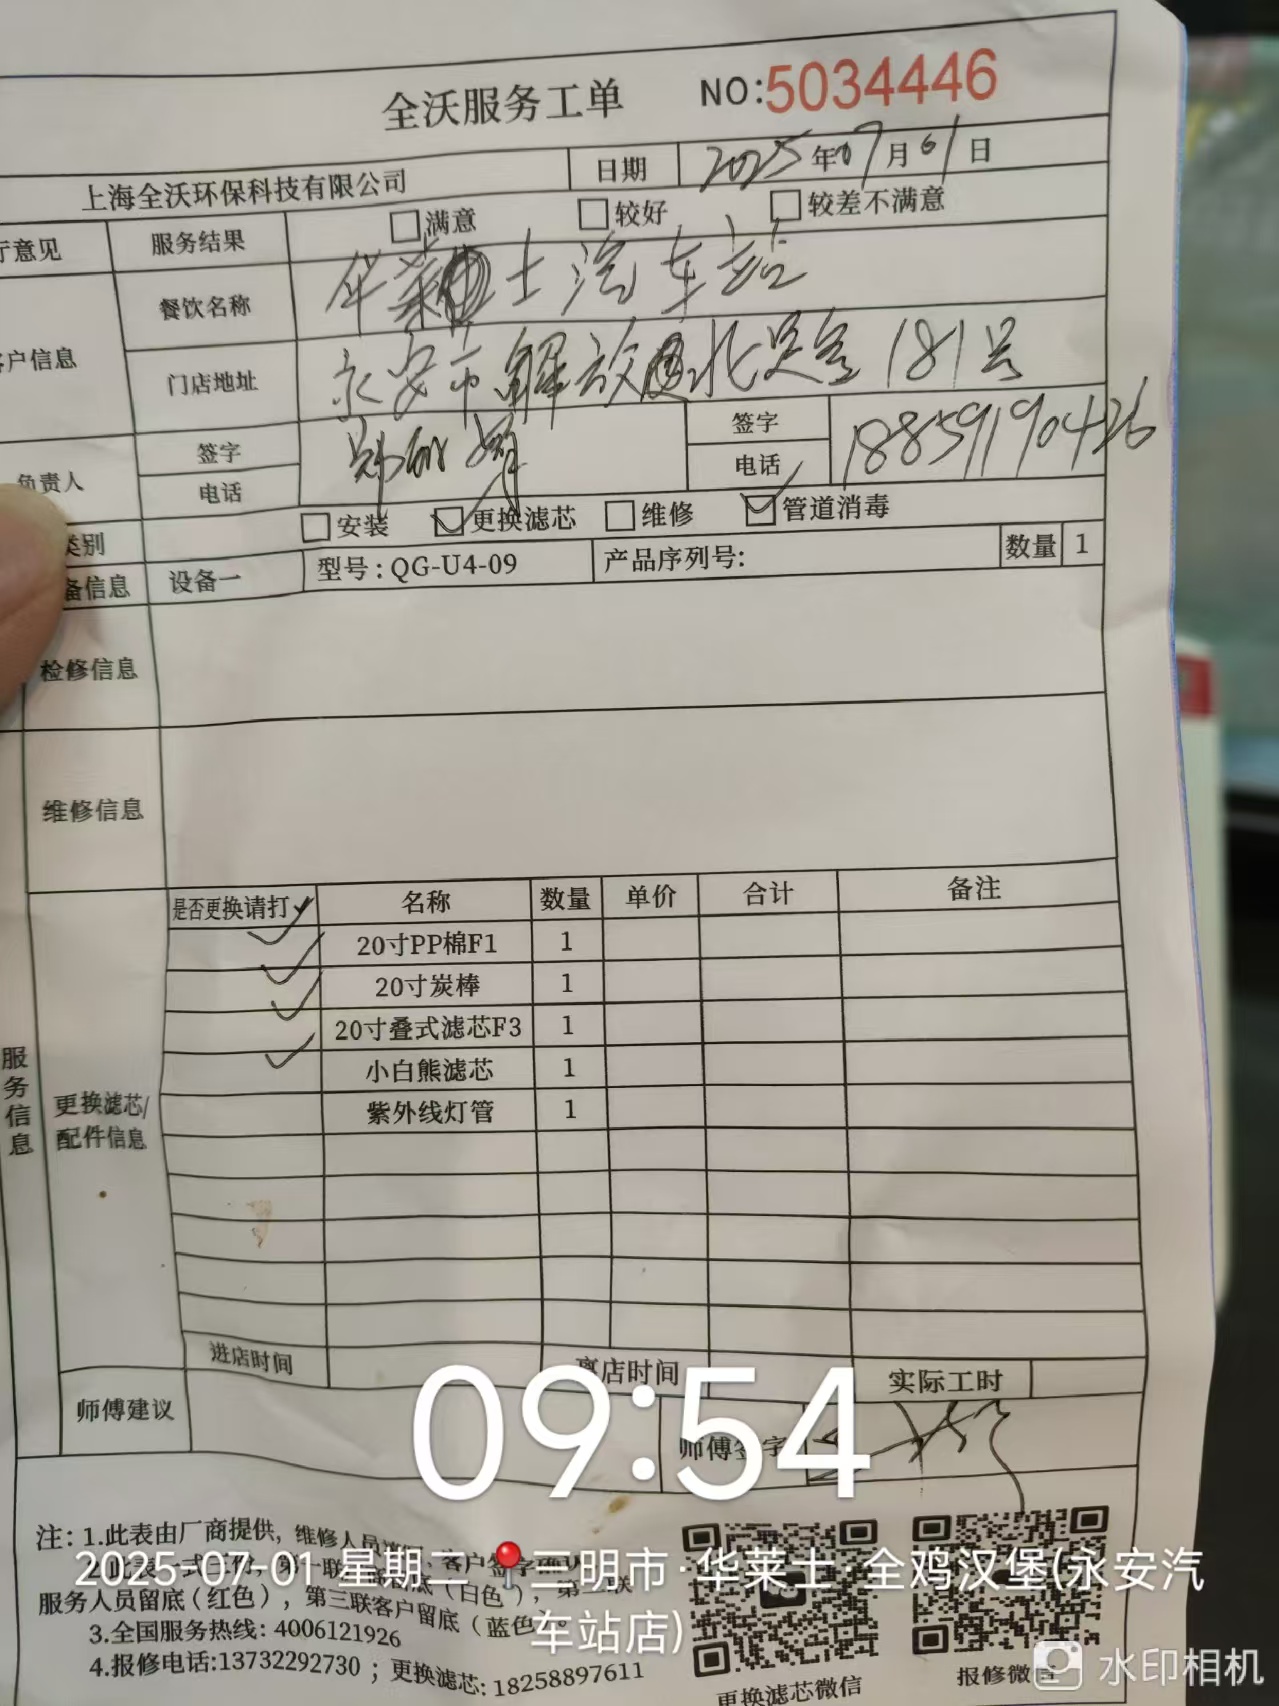 全沃服务工单 NO:5034446
上海全沃环保科技有限公司 日期 2025年07月01日
厅意见 服务结果 满意 较好 较差不满意
客户信息 餐饮名称 华莱士汽车站
门店地址 永安市解放北路181号
负责人 签字 签字
电话 电话 18859190426
类别 安装 更换滤芯 维修 管道消毒
备信息 设备一 型号:QG-U4-09 产品序列号: 数量 1
检修信息
维修信息
服务信息
更换滤芯/
配件信息
是否更换请打✓ 名称 数量 单价 合计 备注
✓ 20寸PP棉F1 1
✓ 20寸炭棒 1
✓ 20寸叠式滤芯F3 1
✓ 小白熊滤芯 1
紫外线灯管 1
进店时间 离店时间 实际工时
师傅建议 师傅签字
09:54
注: 1.此表由厂商提供, 维修人员
2.此表一式三份, 第一联 底(白色), 第二联
服务人员留底(红色), 第三联客户留底(蓝色)。
3.全国服务热线: 4006121926
4.报修电话:13732292730; 更换滤芯: 18258897611
更换滤芯微信 报修微信
2025-07-01 星期二 三明市·华莱士·全鸡汉堡(永安汽
车站店)
水印相机